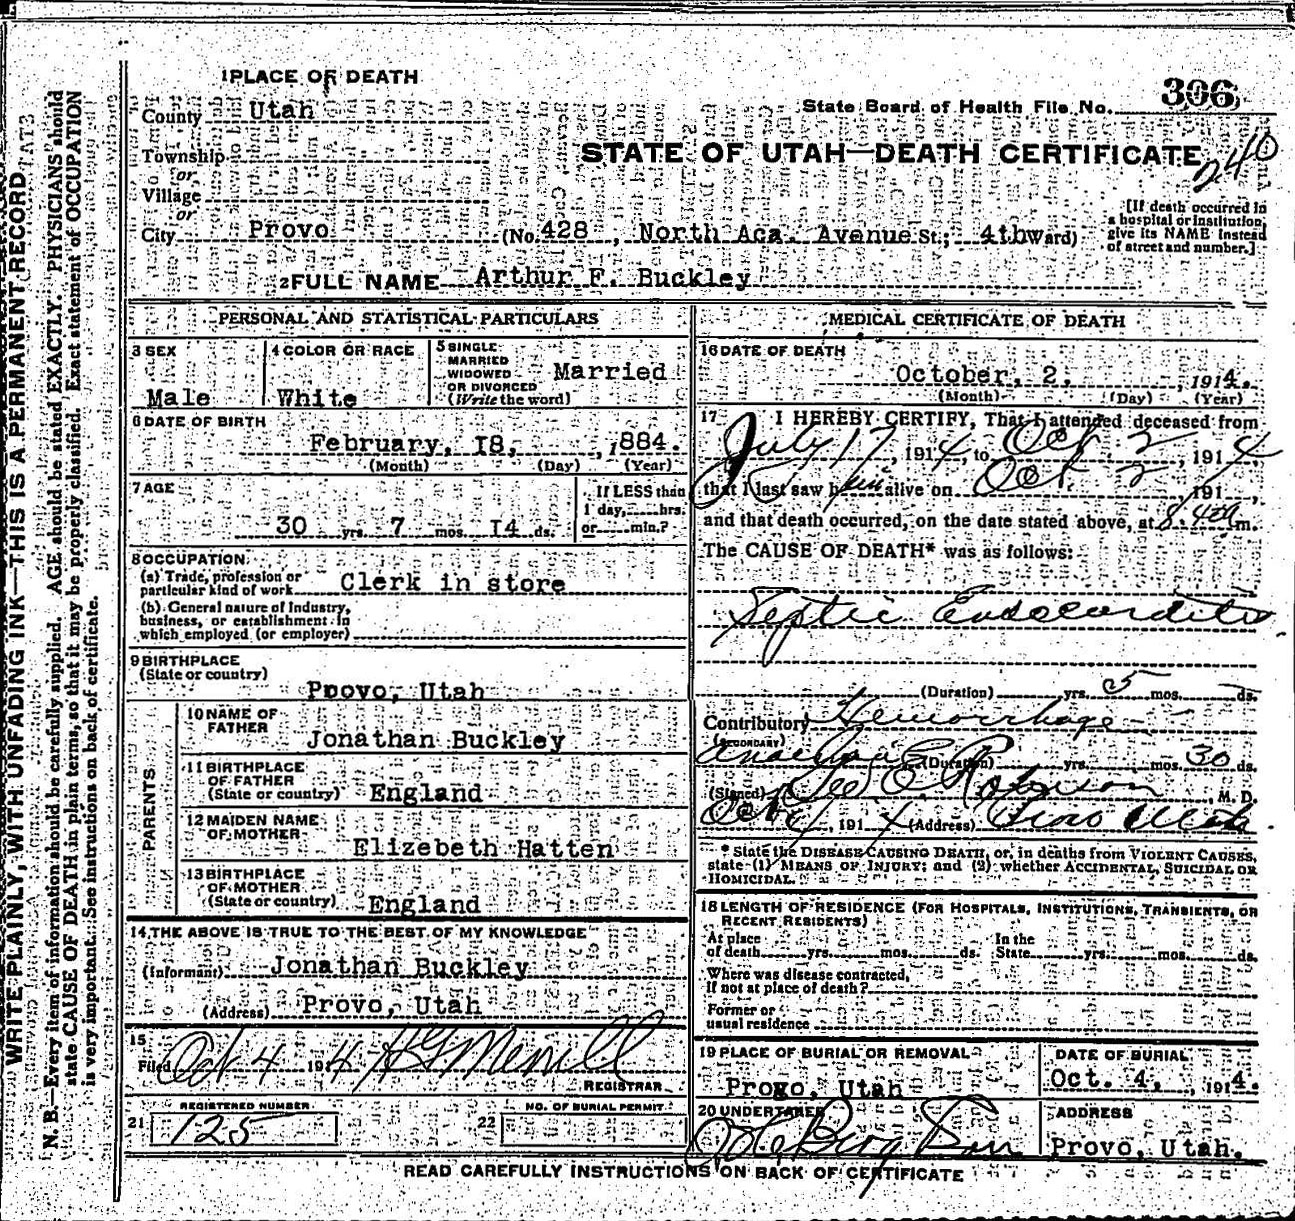 1 PLACE OF DEATH
County Utah
State Board of Health File No. 306
Township
or
Village
or
STATE OF UTAH—DEATH CERTIFICATE
240
[If death occurred in a hospital or institution, give its NAME instead of street and number.]
City Provo (No. 428, North Aca. Avenue St.; 4th Ward)
2 FULL NAME Arthur F. Buckley
PERSONAL AND STATISTICAL PARTICULARS
3 SEX
Male
4 COLOR OR RACE
White
5 SINGLE
MARRIED
WIDOWED
OR DIVORCED
(Write the word)
Married
6 DATE OF BIRTH
February, I8, , 1884.
(Month) (Day) (Year)
7 AGE
30 yrs. 7 mos. I4 ds.
If LESS than
1 day, hrs.
or min.?
8 OCCUPATION
(a) Trade, profession or
particular kind of work Clerk in store
(b) General nature of Industry,
business, or establishment in
which employed (or employer)
9 BIRTHPLACE
(State or country)
Provo, Utah
PARENTS
10 NAME OF
FATHER
Jonathan Buckley
11 BIRTHPLACE
OF FATHER
(State or country) England
12 MAIDEN NAME
OF MOTHER
Elizebeth Hatten
13 BIRTHPLACE
OF MOTHER
(State or country) England
14 THE ABOVE IS TRUE TO THE BEST OF MY KNOWLEDGE
(Informant) Jonathan Buckley
(Address) Provo, Utah
15
Filed Oct 4 1914 H G Merrill
REGISTRAR
21
REGISTERED NUMBER
125
22
NO. OF BURIAL PERMIT
MEDICAL CERTIFICATE OF DEATH
16 DATE OF DEATH
October, 2, , 1914.
(Month) (Day) (Year)
17 I HEREBY CERTIFY, That I attended deceased from
July 17, 1914, to Oct 2, 1914,
that I last saw him alive on Oct. 2 191 ,
and that death occurred, on the date stated above, at m.
The CAUSE OF DEATH* was as follows:
Septic Endocarditis
(Duration) yrs. 5 mos. ds.
Contributory Hemorrhage
(SECONDARY)
(Duration) yrs. mos. 30 ds.
(Signed) , M. D.
Oct , 1914 (Address) Provo Utah.
* State the DISEASE CAUSING DEATH, or, in deaths from VIOLENT CAUSES,
state (1) MEANS OF INJURY; and (2) whether ACCIDENTAL, SUICIDAL OR
HOMICIDAL.
18 LENGTH OF RESIDENCE (FOR HOSPITALS, INSTITUTIONS, TRANSIENTS, OR
RECENT RESIDENTS)
At place
of death yrs. mos. ds.
In the
State yrs. mos. ds.
Where was disease contracted,
If not at place of death?
Former or
usual residence
19 PLACE OF BURIAL OR REMOVAL
Provo, Utah
DATE OF BURIAL
Oct. 4, , 1914.
20 UNDERTAKER
ADDRESS
Provo, Utah.
READ CAREFULLY INSTRUCTIONS ON BACK OF CERTIFICATE
WRITE PLAINLY, WITH UNFADING INK—THIS IS A PERMANENT RECORD
N. B.—Every item of information should be carefully supplied. AGE should be stated EXACTLY. PHYSICIANS should
state CAUSE OF DEATH in plain terms, so that it may be properly classified. Exact statement of OCCUPATION
is very important. See instructions on back of certificate.